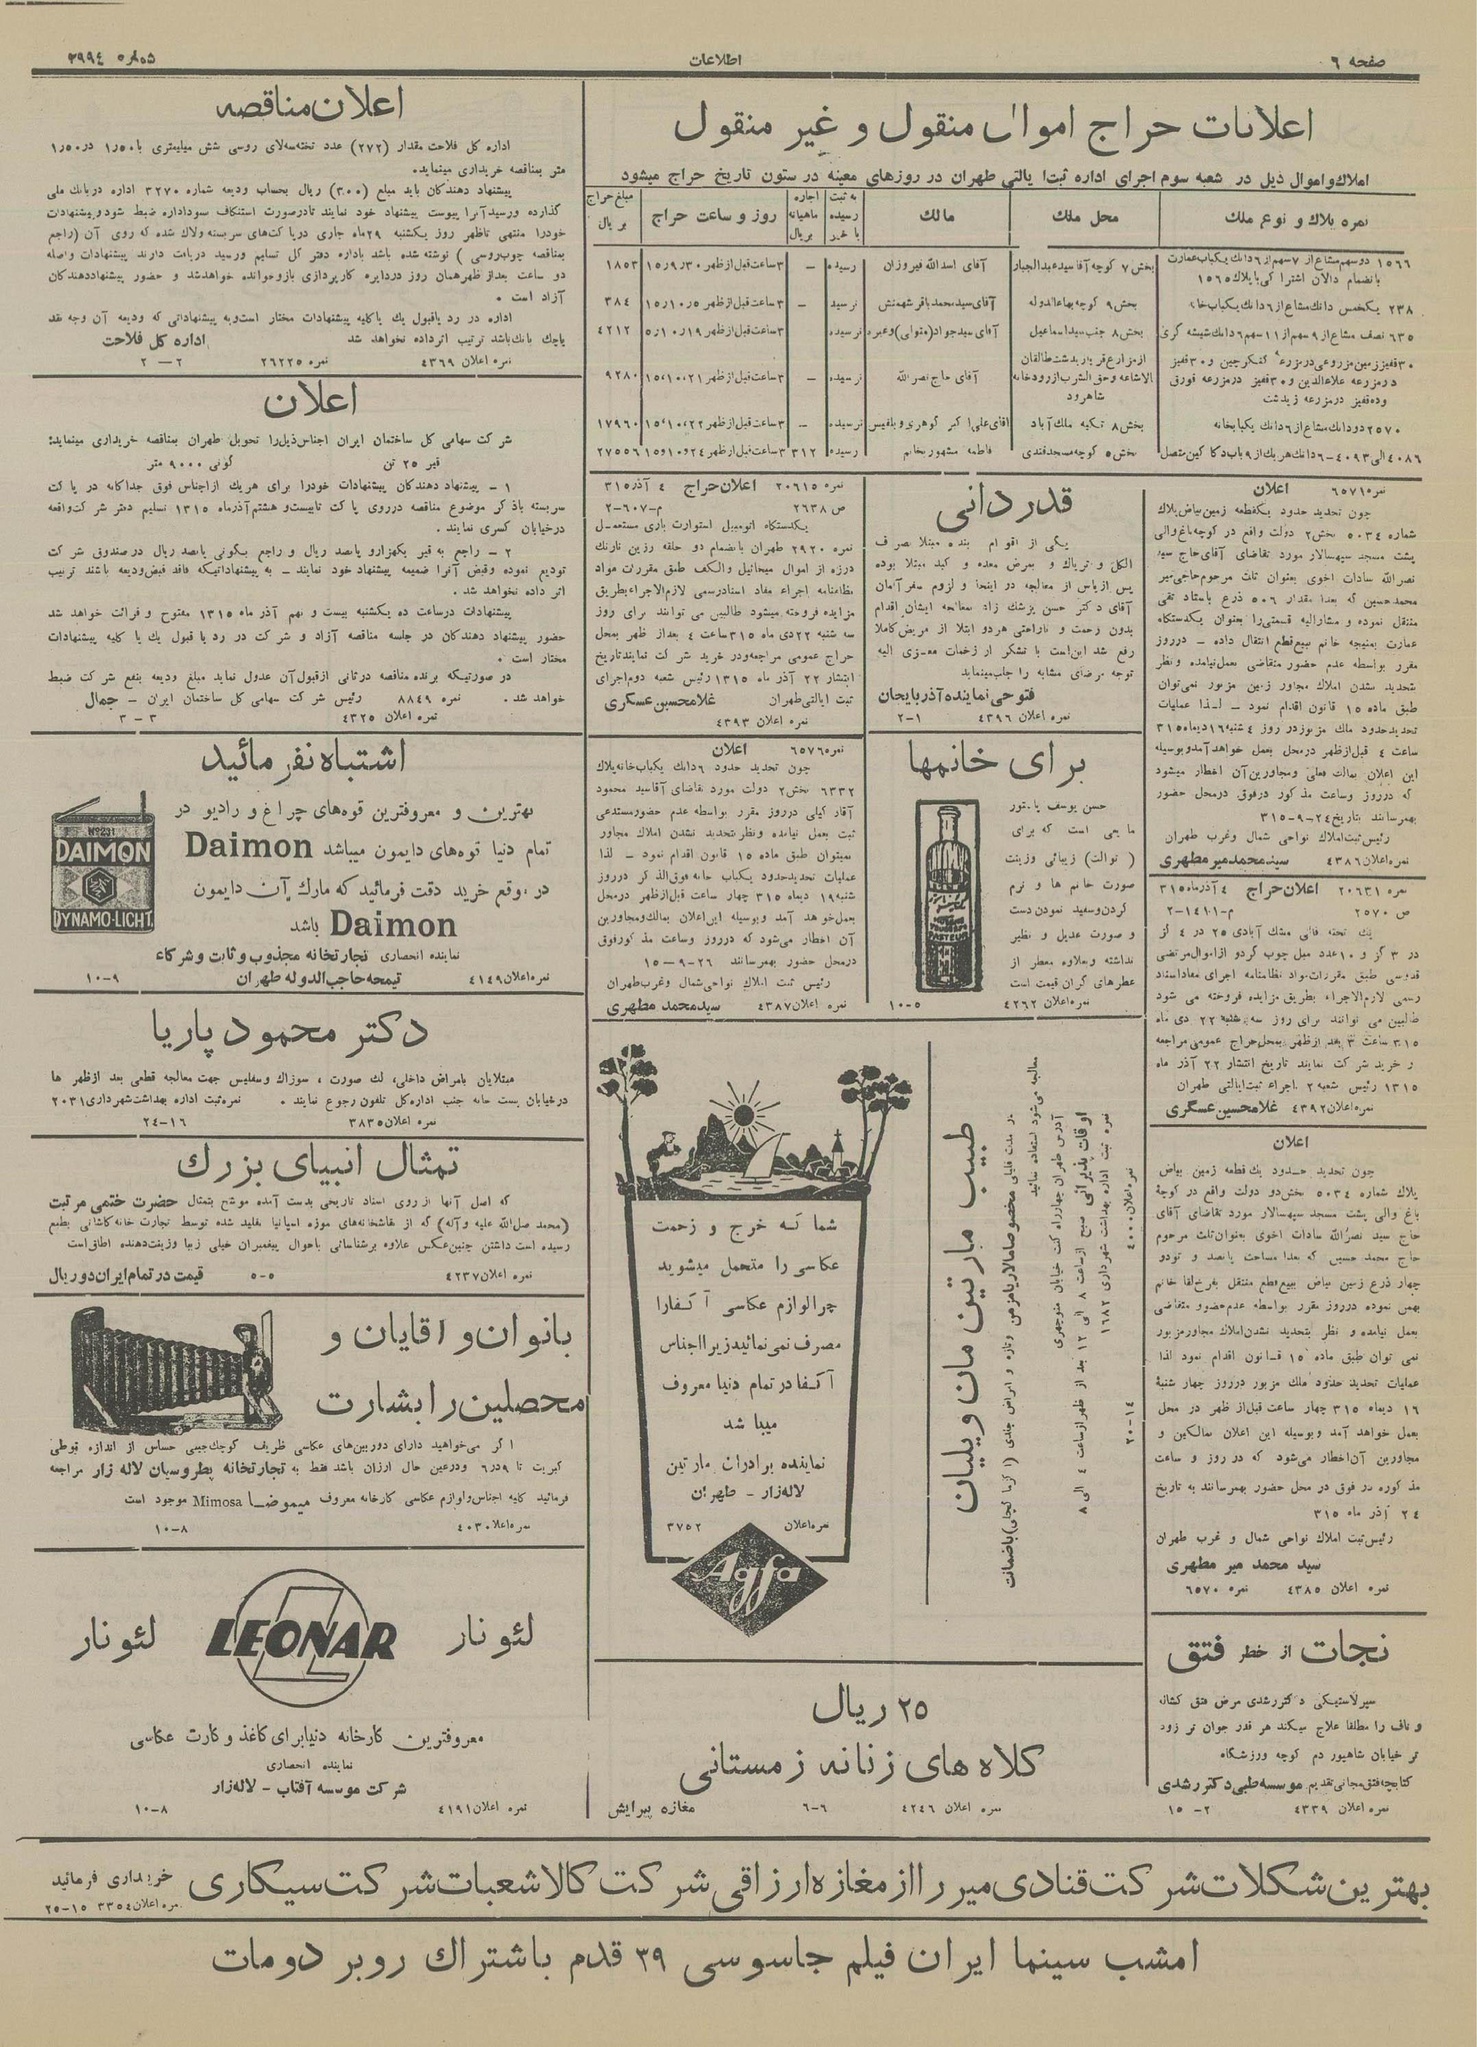 صفحه ۶
اطلاعات
شماره ۳۹۹۴
اعلانات حراج اموال منقول و غیر منقول
املاک و اموال ذیل در شعبه سوم اجرای اداره ثبت ایالتی طهران در روزهای معینه در ستون تاریخ حراج میشود
نمره پلاک و نوع ملک
محل ملک
مالک
به ثبت رسیده یا خیر
اجاره ماهیانه بریال
روز و ساعت حراج
مبلغ حراج بریال
۱۵۶۶ دو سهم مشاع از ۷ سهم از ۶ دانک یکباب عمارت بانضمام دالان اشتراکی با پلاک ۱۵۶۵
بخش ۷ کوچه آقا سید عبدالجبار
آقای اسدالله فیروزان
رسیده
–
۳ ساعت قبل از ظهر ۱۵/۹/۳۰
۱۸۵۳
۲۳۸ یکخمس دانک مشاع از ۶ دانک یکباب خانه
بخش ۹ کوچه بهاءالدوله
آقای سید محمد باقر شهمنش
نرسید
–
۳ ساعت قبل از ظهر ۱۵/۱۰/۵
۳۸۴
۶۳۵ نصف مشاع از ۹ سهم از ۱۱ سهم ۶ دانک شیشه گری
بخش ۸ جنب سید اسماعیل
آقای سید جواد (متولی) و غیره
نرسیده
۳ ساعت قبل از ظهر ۵/۱۰/۱۹
۴۲۱۲
آقای حاج نصرالله
نرسیده
–
۳ ساعت قبل از ظهر ۱۵/۱۰/۲۱
۹۲۸۰
۲۵۷۰ دو دانک مشاع از ۶ دانک یکبابخانه
بخش ۸ تکیه ملک آباد
آقای علی اکبر گوهری و بلقیس
نرسیده
–
۳ ساعت قبل از ظهر ۱۵/۱۰/۲۲
۱۷۹۶۰
۴۰۸۶ الی ۴۰۹۳ – ۶ دانک هر یک از ۹ باب دکاکین متصل
بخش ۵ کوچه مسجد قندی
فاطمه مشهور بخانم
رسیده
۳۱۲
۳ ساعت قبل از ظهر ۲۴ و ۱۰ و ۱۵
۲۷۵۵۶
نمره ۶۵۷۱ اعلان
چون تحدید حدود یکقطعه زمین بیاض پلاک
شماره ۵۰۳۴ بخش ۲ دولت واقع در کوچه باغ والی
پشت مسجد سپهسالار مورد تقاضای آقای حاج سید
نصرالله سادات اخوی بعنوان ثلث مرحوم حاجی میر
محمد حسین که بعدا مقدار ۵۰۶ ذرع باستاد تقی
منتقل نموده و مشارالیه قسمتی را بعنوان یکدستگاه
عمارت بمنیجه خانم ببیع قطع انتقال داده – در روز
مقرر بواسطه عدم حضور متقاضی بعمل نیامده و نظر
بتحدید نشدن املاک مجاور زمین مزبور نمی توان
طبق ماده ۱۵ قانون اقدام نمود – لذا عملیات
تحدید حدود ملک مزبور در روز ۴ شنبه ۱۶ دیماه ۳۱۵
ساعت ۴ قبل از ظهر در محل بعمل خواهد آمد و بوسیله
این اعلان بمالک فعلی و مجاورین آن اخطار میشود
که در روز و ساعت مذکور در فوق در محل حضور
بهمرسانند بتاریخ ۲۴-۹-۳۱۵
رئیس ثبت املاک نواحی شمال و غرب طهران
نمره اعلان ۴۳۸۶ سید محمد میر مطهری
نمره ۲۰۶۳۱ اعلان حراج ۴ آذر ماه ۳۱۵
ص ۲۵۷۰ م-۱۴۱۱-۲
یک تخته قالی مشک آبادی ۲۵ در ۴ گز
در ۳ گز و ۱۰ عدد مبل چوب گردو از اموال مرتضی
قدوسی طبق مقررات مواد نظامنامه اجرای مفاد اسناد
رسمی لازم الاجراء بطریق مزایده فروخته می شود
طالبین می توانند برای روز سه شنبه ۲۲ دی ماه
۳۱۵ ساعت ۳ بعد از ظهر بمحل حراج عمومی مراجعه
و خرید شرکت نمایند تاریخ انتشار ۲۲ آذر ماه
۱۳۱۵ رئیس شعبه ۲ اجراء ثبت ایالتی طهران
نمره اعلان ۴۳۹۲ غلامحسین عسگری
اعلان
چون تحدید حدود یک قطعه زمین بیاض
پلاک شماره ۵۰۳۴ بخش دو دولت واقع در کوچه
باغ والی پشت مسجد سپهسالار مورد تقاضای آقای
حاج سید نصرالله سادات اخوی بعنوان ثلث مرحوم
حاج محمد حسین که بعدا مساحت پانصد و نود و
چهار ذرع زمین بیاض ببیع قطع منتقل بفرخ لقا خانم
بهمن نموده در روز مقرر بواسطه عدم حضور متقاضی
بعمل نیامده و نظر بتحدید نشدن املاک مجاور مزبور
نمی توان طبق ماده ۱۵ قانون اقدام نمود لذا
عملیات تحدید حدود ملک مزبور در روز چهار شنبه
۱۶ دیماه ۳۱۵ چهار ساعت قبل از ظهر در محل
بعمل خواهد آمد و بوسیله این اعلان بمالکین و
مجاورین آن اخطار می شود که در روز و ساعت
مذکوره در فوق در محل حضور بهمرسانند به تاریخ
۲۴ آذر ماه ۳۱۵
رئیس ثبت املاک نواحی شمال و غرب طهران
سید محمد میر مطهری
نمره اعلان ۴۳۸۵ نمره ۶۵۷۰
نجات از خطر فتق
سیر لاستیکی دکتر رشدی مرض فتق کشاله
و ناف را مطلقا علاج میکند هر قدر جوان تر زود
تر خیابان شاهپور دم کوچه ورزشگاه
کتابچه فتق مجانی تقدیم موسسه طبی دکتر رشدی
نمره اعلان ۴۳۳۹ ۲-۱۵
قدردانی
یکی از اقوام بنده مبتلا بصرف
الکل و تریاک و بمرض معده و کبد مبتلا بوده
پس از یاس از معالجه در اینجا و لزوم سفر آلمان
آقای دکتر حسن پزشک زاد بمعالجه ایشان اقدام
بدون زحمت و ناراحتی هر دو ابتلا از مریض کاملا
رفع شد این است با تشکر از زحمات معزی الیه
توجه مرضای مشابه را جلب مینماید
فتوحی نماینده آذربایجان
نمره اعلان ۴۳۹۶ ۲-۱
برای خانمها
حسن یوسف پاستور
مایعی است که برای
( توالت ) زیبائی و زینت
صورت خانم ها و نرم
کردن و سفید نمودن دست
و صورت عدیل و نظیر
نداشته و بعلاوه معطر از
عطرهای گران قیمت است
نمره اعلان ۴۲۶۲ ۱۰-۵
PASTEUR
نمره ۲۰۶۱۵ اعلان حراج ۴ آذر ۳۱۵
ص ۲۶۳۸ م-۶۰۷-۲
یکدستگاه اتومبیل استوارت باری مستعمل
نمره ۲۹۲۰ طهران بانضمام دو حلقه رزین نارنک
درزه از اموال میخائیل والکف طبق مقررات مواد
نظامنامه اجراء مفاد اسناد رسمی لازم الاجراء بطریق
مزایده فروخته میشود طالبین می توانند برای روز
سه شنبه ۲۲ دی ماه ۳۱۵ ساعت ۴ بعد از ظهر بمحل
حراج عمومی مراجعه و در خرید شرکت نمایند تاریخ
انتشار ۲۲ آذر ماه ۱۳۱۵ رئیس شعبه دوم اجرای
ثبت ایالتی طهران غلامحسین عسگری
نمره اعلان ۴۳۹۳
نمره ۶۵۷۶ اعلان
چون تحدید حدود ۶ دانک یکباب خانه پلاک
۶۳۳۲ بخش ۲ دولت مورد تقاضای آقا سید محمود
آقار کیلی در روز مقرر بواسطه عدم حضور مستدعی
ثبت بعمل نیامده و نظر بتحدید نشدن املاک مجاور
نمیتوان طبق ماده ۱۵ قانون اقدام نمود – لذا
عملیات تحدید حدود یکباب خانه فوق الذکر در روز
شنبه ۱۹ دیماه ۳۱۵ چهار ساعت قبل از ظهر در محل
بعمل خواهد آمد و بوسیله این اعلان بمالک و مجاورین
آن اخطار می شود که در روز و ساعت مذکور فوق
در محل حضور بهمرسانند ۲۶-۹-۱۵
رئیس ثبت املاک نواحی شمال و غرب طهران
نمره اعلان ۴۳۸۷ سید محمد مطهری
طبیب مارتین مان ویلیان
در مدت قلیلی مخصوصا مالاریا مزمن و تازه و امراض جلدی (اگزما کچلی) با ضمانت
معالجه می شود استفاده نمائید
آدرس طهران چهارراه کنت خیابان منوچهری
اوقات پذیرائی صبح از ساعت ۸ الی ۱۲ بعد از ظهر از ساعت ۴ الی ۸
نمره ثبت اداره بهداشت شهرداری ۱۶۸۲
نمره اعلان ۴۰۰۰ ۲۰-۱۴
شما که خرج و زحمت
عکاسی را متحمل میشوید
چرا لوازم عکاسی آکفا را
مصرف نمی نمائید زیرا اجناس
آکفا در تمام دنیا معروف
میباشد
نماینده برادران مارتین
لاله زار – طهران
نمره اعلان ۳۷۵۲
Agfa
۲۵ ریال
کلاه های زنانه زمستانی
نمره اعلان ۴۲۴۶ ۶-۶ مغازه پیرایش
اعلان مناقصه
اداره کل فلاحت مقدار (۲۷۲) عدد تخته سه لای روسی شش میلیمتری با ۱/۵۰ در ۱/۵۰
متر بمناقصه خریداری مینماید.
پیشنهاد دهندگان باید مبلغ (۳۰۰) ریال بحساب ودیعه شماره ۳۲۷۰ اداره در بانک ملی
گذارده و رسید آنرا پیوست پیشنهاد خود نمایند تا در صورت استنکاف بسود اداره ضبط شود و پیشنهادات
خود را منتهی تا ظهر روز یکشنبه ۲۹ ماه جاری در پاکت های سربسته و لاک شده که روی آن (راجع
بمناقصه چوب روسی) نوشته شده باشد باداره دفتر کل تسلیم و رسید دریافت دارند پیشنهادات واصله
دو ساعت بعد از ظهر همان روز در دایره کارپردازی باز و خوانده خواهد شد و حضور پیشنهاد دهندگان
آزاد است .
اداره در رد یا قبول یک یا کلیه پیشنهادات مختار است و به پیشنهاداتی که ودیعه آن وجه نقد
یا چک بانک باشد ترتیب اثر داده نخواهد شد اداره کل فلاحت
نمره اعلان ۴۳۶۹ نمره ۲۶۲۲۵ ۲-۲
اعلان
شرکت سهامی کل ساختمان ایران اجناس ذیل را تحویل طهران بمناقصه خریداری مینماید:
قیر ۲۵ تن گونی ۹۰۰۰ متر
۱ – پیشنهاد دهندگان پیشنهادات خود را برای هر یک از اجناس فوق جداگانه در پاکت
سربسته با ذکر موضوع مناقصه در روی پاکت تا بیست و هشتم آذر ماه ۱۳۱۵ تسلیم دفتر شرکت واقعه
در خیابان کسری نمایند .
۲ – راجع به قیر یکهزار و پانصد ریال و راجع بگونی پانصد ریال در صندوق شرکت
تودیع نموده و قبض آنرا ضمیمه پیشنهاد خود نمایند – به پیشنهاداتیکه فاقد قبض ودیعه باشند ترتیب
اثر داده نخواهد شد .
پیشنهادات در ساعت ده یکشنبه بیست و نهم آذر ماه ۱۳۱۵ مفتوح و قرائت خواهد شد
حضور پیشنهاد دهندگان در جلسه مناقصه آزاد و شرکت در رد یا قبول یک یا کلیه پیشنهادات
مختار است .
در صورتیکه برنده مناقصه در ثانی از قبول آن عدول نماید مبلغ ودیعه بنفع شرکت ضبط
خواهد شد . نمره ۸۸۴۹ رئیس شرکت سهامی کل ساختمان ایران – جمال
نمره اعلان ۴۳۲۵ ۳-۳
اشتباه نفرمائید
بهترین و معروفترین قوه های چراغ و رادیو در
تمام دنیا قوه های دایمون میباشد Daimon
در موقع خرید دقت فرمائید که مارک آن دایمون
Daimon باشد
نماینده انحصاری تجارتخانه مجذوب و ثابت و شرکاء
نمره اعلان ۴۱۴۹ تیمچه حاجب الدوله طهران ۱۰-۹
Nº 231
DAIMON
DYNAMO-LICHT
دکتر محمود پاریا
مبتلایان بامراض داخلی، لک صورت ، سوزاک و سفلیس جهت معالجه قطعی بعد از ظهر ها
در خیابان پست خانه جنب اداره کل تلفون رجوع نمایند . نمره ثبت اداره بهداشت شهرداری ۲۰۳۱
نمره اعلان ۳۸۳۵ ۲۴-۱۶
تمثال انبیای بزرک
که اصل آنها از روی اسناد تاریخی بدست آمده موشح بتمثال حضرت ختمی مرتبت
(محمد صل الله علیه و آله) که از نقاشخانه های موزه اسپانیا تقلید شده توسط تجارت خانه کاشانی بطبع
رسیده است داشتن چنین عکس علاوه بر شناسائی باحوال پیغمبران خیلی زیبا و زینت دهنده اطاق است
نمره اعلان ۴۲۳۷ ۵-۵ قیمت در تمام ایران دو ریال
بانوان و آقایان و
محصلین را بشارت
اگر می خواهید دارای دوربین های عکاسی ظریف کوچک جیبی حساس از اندازه قوطی
کبریت تا ۹ در ۶ و در عین حال ارزان باشد فقط به تجارتخانه پطروسیان لاله زار مراجعه
فرمائید کلیه اجناس و لوازم عکاسی کارخانه معروف میموضا Mimosa موجود است
نمره اعلان ۴۰۳۰ ۱۰-۸
لئونار LEONAR لئونار
معروفترین کارخانه دنیا برای کاغذ و کارت عکاسی
نماینده انحصاری
شرکت موسسه آفتاب – لاله زار
نمره اعلان ۴۱۹۱ ۱۰-۸
بهترین شکلات شرکت قنادی میر را از مغازه ارزاقی شرکت کالا شعبات شرکت سیکاری خریداری فرمائید
نمره اعلان ۳۳۵۴ ۲۵-۱۵
امشب سینما ایران فیلم جاسوسی ۳۹ قدم باشتراک روبر دومات